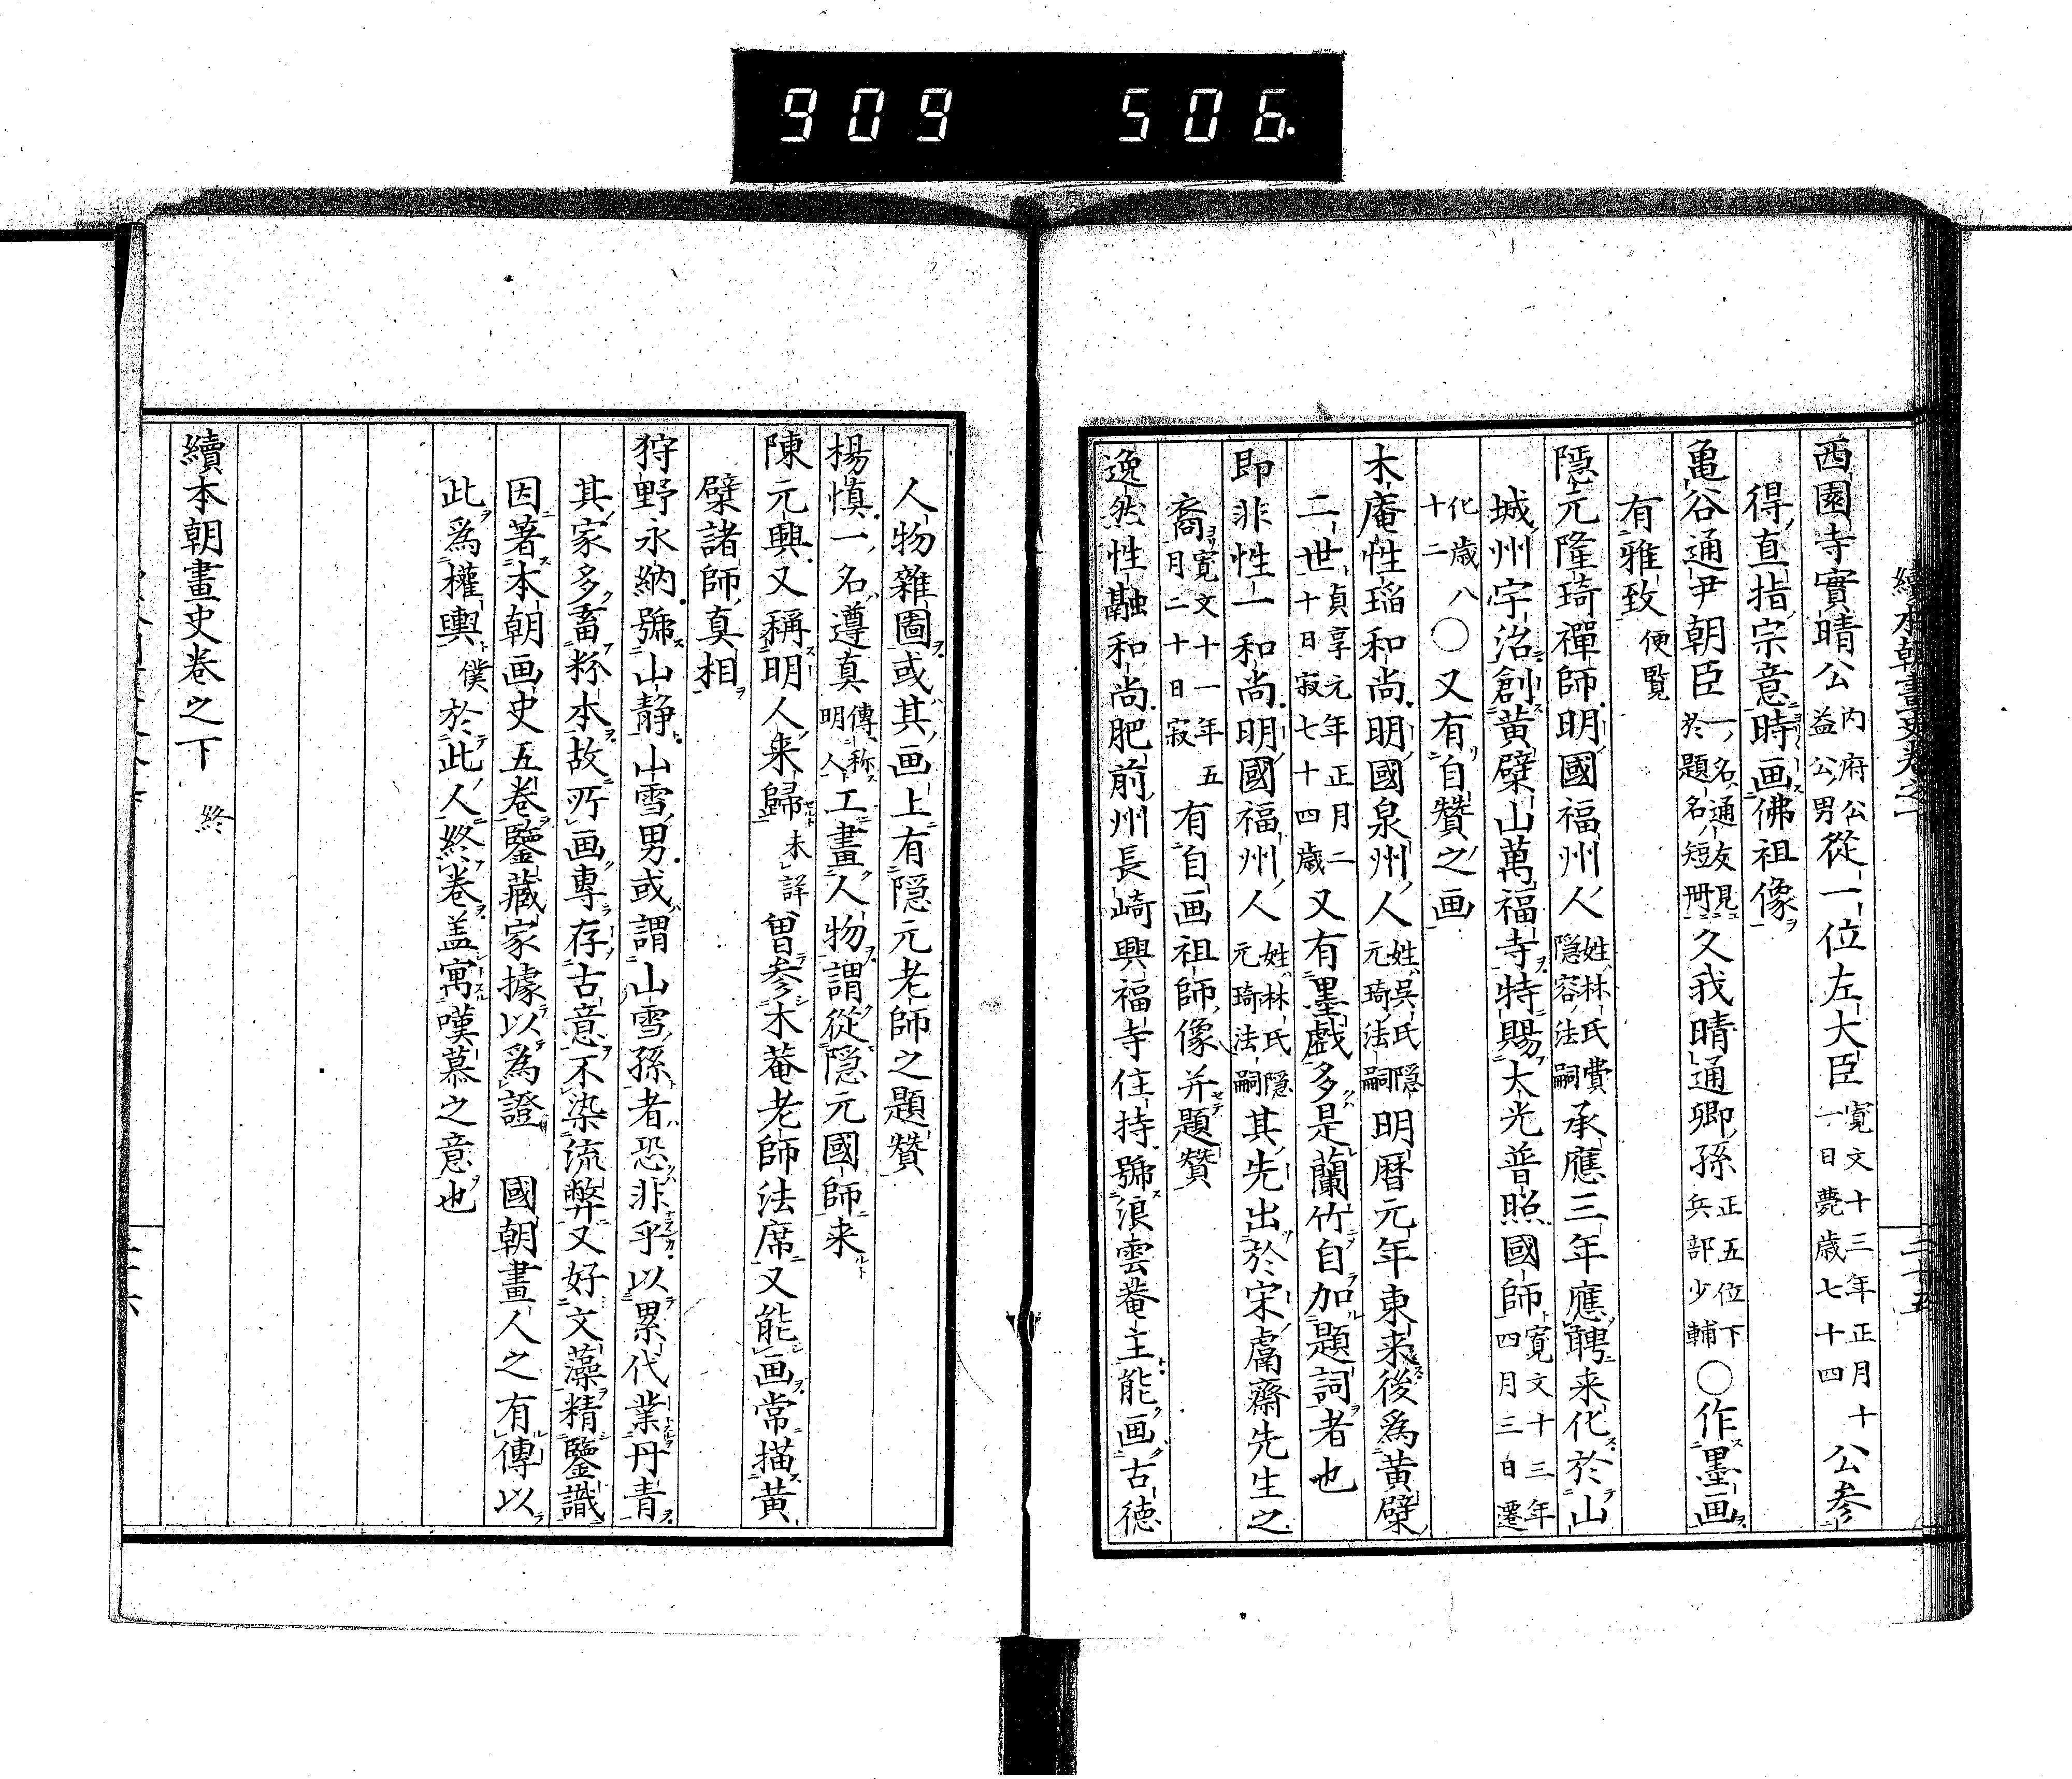 909 506.
西園寺實晴公 内府公益公男 從一位左大臣 寛文十三年正月十一日薨歳七十四 公参
得直指宗意時画佛祖像
亀谷通尹朝臣 一名通友見於題名短冊 久我晴通卿孫 正五位下兵部少輔 ○作墨画
有雅致 便覧
隠元隆琦禪師明國福州人 姓林氏費隠容法嗣 承應三年應聘来化於山
城州宇治創黄檗山萬福寺特賜大光普照國師 寛文十三年四月三日遷
化歳八十二 ○又有自賛之画
木庵性瑫和尚明國泉州人 姓呉氏隠元琦法嗣 明暦元年東来後爲黄檗
二世 貞享元年正月二十日寂七十四歳 又有墨戯多是蘭竹自加題詞者也
即非性一和尚明國福州人 姓林氏隠元琦法嗣 其先出於宋鬳齋先生之
裔 寛文十一年五月二十日寂 有自画祖師像并題賛
逸然性融和尚肥前州長崎興福寺住持號浪雲菴主能画古徳
人物雜圖或其画上有隠元老師之題賛
楊慎一名遵真 傳称明人 工畫人物謂從隠元國師来
陳元興又稱明人来歸 未詳 曽参木菴老師法席又能画常描黄
檗諸師真相
狩野永納號山靜山雪男或謂山雪孫者恐非乎以累代業丹青
其家多畜粉本故所画專存古意不染流弊又好文藻精鑒識
因著本朝画史五卷鑒藏家據以爲證 國朝畫人之有傳以
此爲權輿 僕 於此人終卷盖寓嘆慕之意也
續本朝畫史卷之下 終